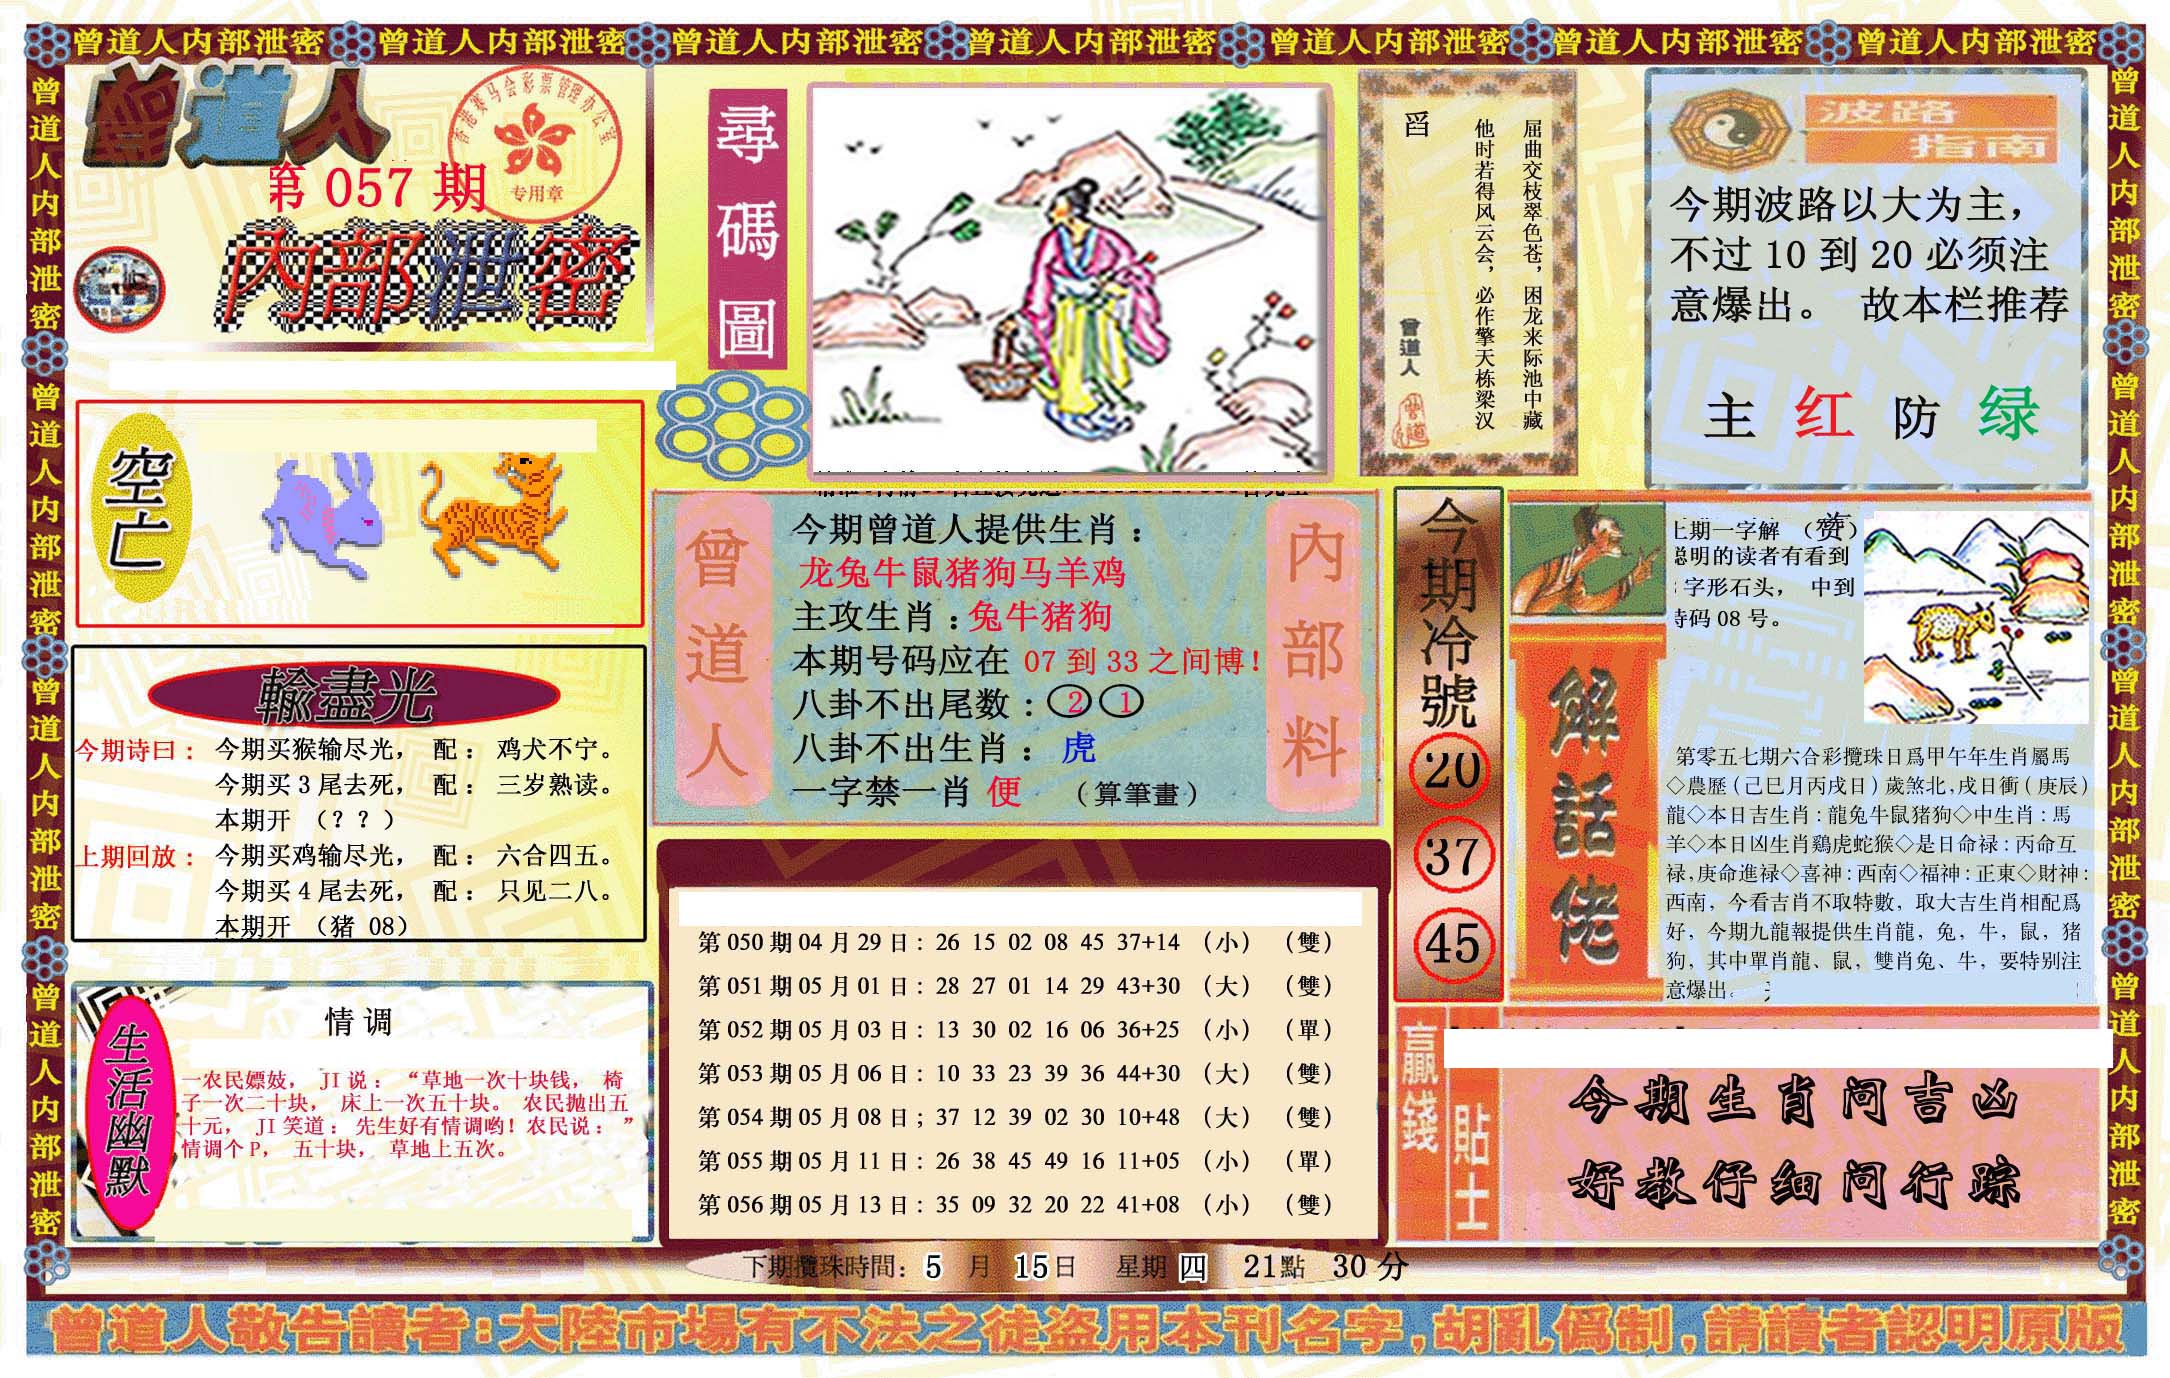 曾道人内部泄密 曾道人内部泄密 曾道人内部泄密 曾道人内部泄密 曾道人内部泄密 曾道人内部泄密 曾道人内部泄密
曾道人内部泄密
曾道人内部泄密
曾道人内部泄密
曾道人内部泄密
曾道人
香港赛马会彩票管理办公室
专用章
第 057 期
內部泄密
空亡
輸盡光
今期诗曰： 今期买猴输尽光， 配： 鸡犬不宁。
今期买 3 尾去死， 配： 三岁熟读。
本期开 （? ? ）
上期回放： 今期买鸡输尽光， 配： 六合四五。
今期买 4 尾去死， 配： 只见二八。
本期开 （猪 08）
生活幽默
情 调
一农民嫖妓， JI 说： “草地一次十块钱， 椅
子一次二十块， 床上一次五十块。 农民抛出五
十元， JI 笑道： 先生好有情调哟！农民说： ”
情调个 P， 五十块， 草地上五次。
尋碼圖
屈曲交枝翠色苍，困龙来际池中藏
他时若得风云会，必作擎天栋梁汉
舀
曾道人
波路
指南
今期波路以大为主，
不过 10 到 20 必须注
意爆出。 故本栏推荐
主 红 防 绿
曾道人
今期曾道人提供生肖：
龙兔牛鼠猪狗马羊鸡
主攻生肖：兔牛猪狗
本期号码应在 07 到 33 之间博！
八卦不出尾数：② ①
八卦不出生肖： 虎
一字禁一肖 便 （算筆畫）
內部料
第 050 期 04 月 29 日：26 15 02 08 45 37+14 （小） （雙）
第 051 期 05 月 01 日：28 27 01 14 29 43+30 （大） （雙）
第 052 期 05 月 03 日：13 30 02 16 06 36+25 （小） （單）
第 053 期 05 月 06 日：10 33 23 39 36 44+30 （大） （雙）
第 054 期 05 月 08 日；37 12 39 02 30 10+48 （大） （雙）
第 055 期 05 月 11 日：26 38 45 49 16 11+05 （小） （單）
第 056 期 05 月 13 日：35 09 32 20 22 41+08 （小） （雙）
今期冷號
20
37
45
解話佬
上期一字解 （赞）
聪明的读者有看到
字形石头， 中到
特码 08 号。
第零五七期六合彩攪珠日爲甲午年生肖屬馬
◇農歷（己巳月丙戌日）歲煞北,戌日衝（庚辰）
龍◇本日吉生肖：龍兔牛鼠猪狗◇中生肖：馬
羊◇本日凶生肖鷄虎蛇猴◇是日命禄：丙命互
禄,庚命進禄◇喜神：西南◇福神：正東◇財神：
西南，今看吉肖不取特數，取大吉生肖相配爲
好，今期九龍報提供生肖龍，兔，牛，鼠，猪
狗，其中單肖龍、鼠，雙肖兔、牛，要特别注
意爆出。
贏錢
貼士
今期生肖问吉凶
好教仔细问行踪
下期攪珠時間： 5 月 15日 星期 四 21點 30 分
曾道人敬告讀者:大陸市場有不法之徒盗用本刊名字,胡亂僞制,請讀者認明原版